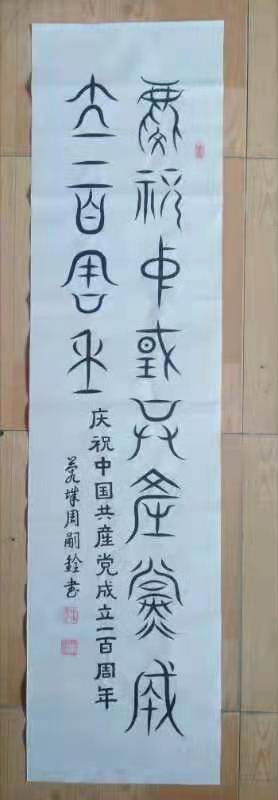 慶祝中國共產黨成
立一百周年
庆祝中国共産党成立一百周年
周嗣銓书